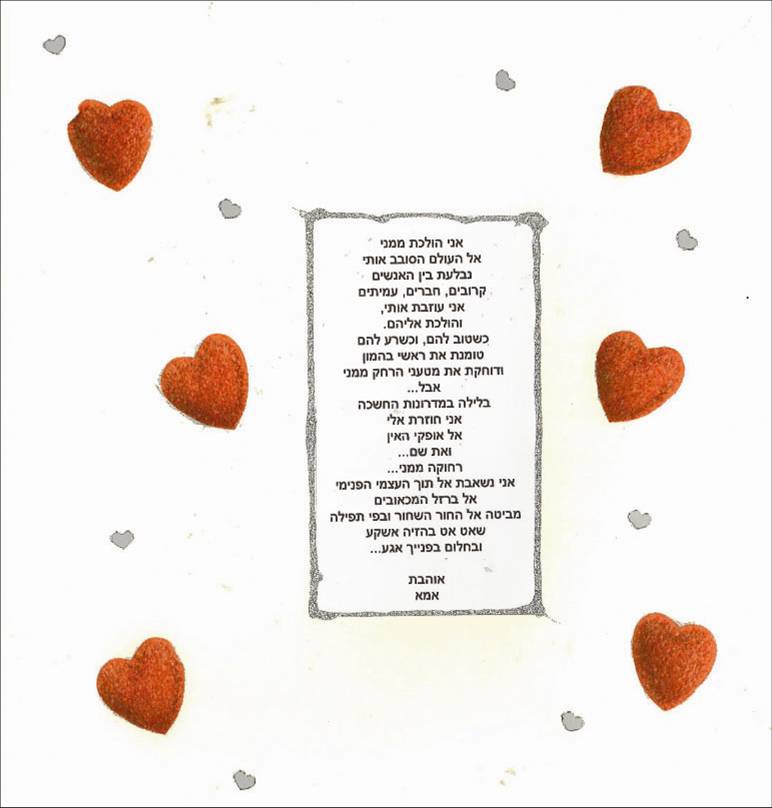 אני הולכת ממני
אל העולם הסובב אותי
נבלעת בין האנשים
קרובים, חברים, עמיתים
אני עוזבת אותי,
והולכת אליהם.
כשטוב להם, וכשרע להם
טומנת את ראשי בהמון
ודוחקת את מטעני הרחק ממני
אבל...
בלילה במדרונות החשכה
אני חוזרת אלי
אל אופקי האין
ואת שם...
רחוקה ממני...
אני נשאבת אל תוך העצמי הפנימי
אל ברזל המכאובים
מביטה אל החור השחור ובפי תפילה
שאט אט בהזיה אשקע
ובחלום בפנייך אגע...
אוהבת
אמא